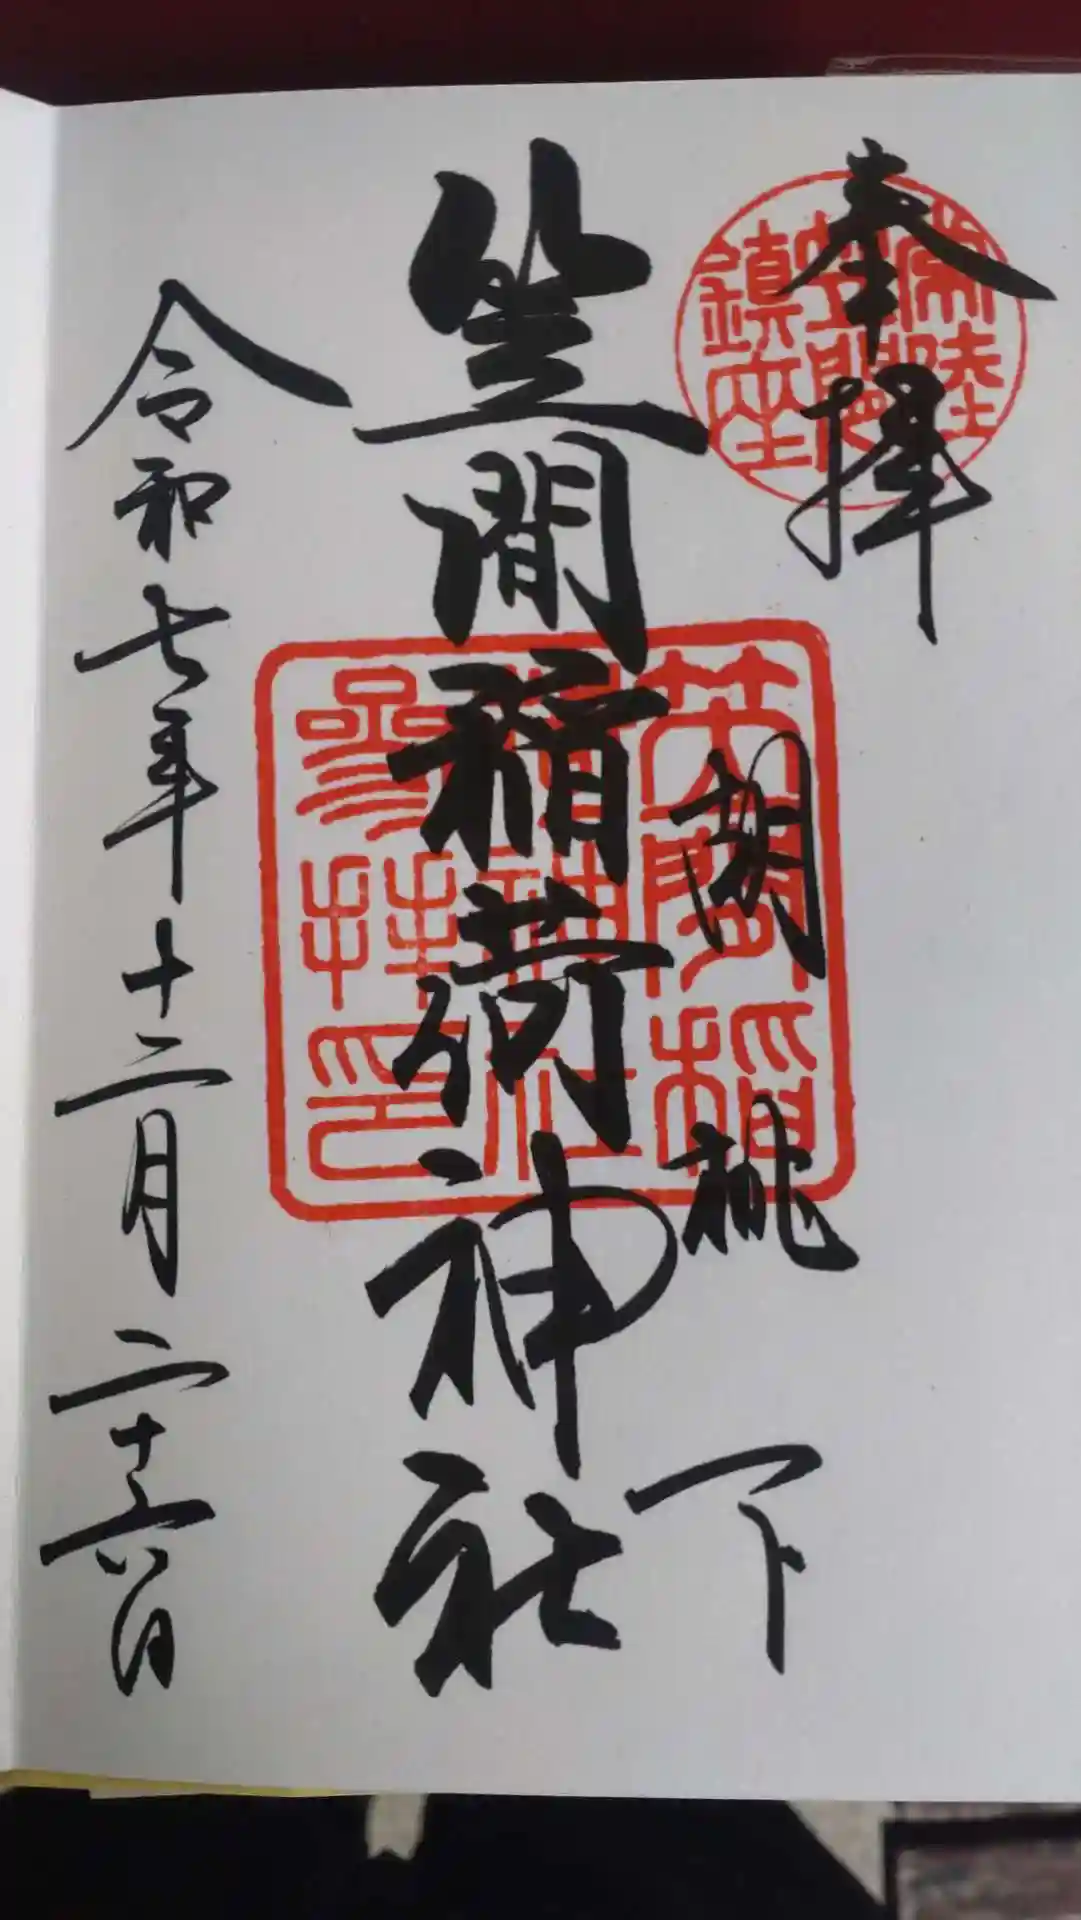 奉拝
常陸
笠間
鎮座
胡桃下
笠間稲荷神社
笠間稲
荷神社
参拝印
令和七年十二月二十六日